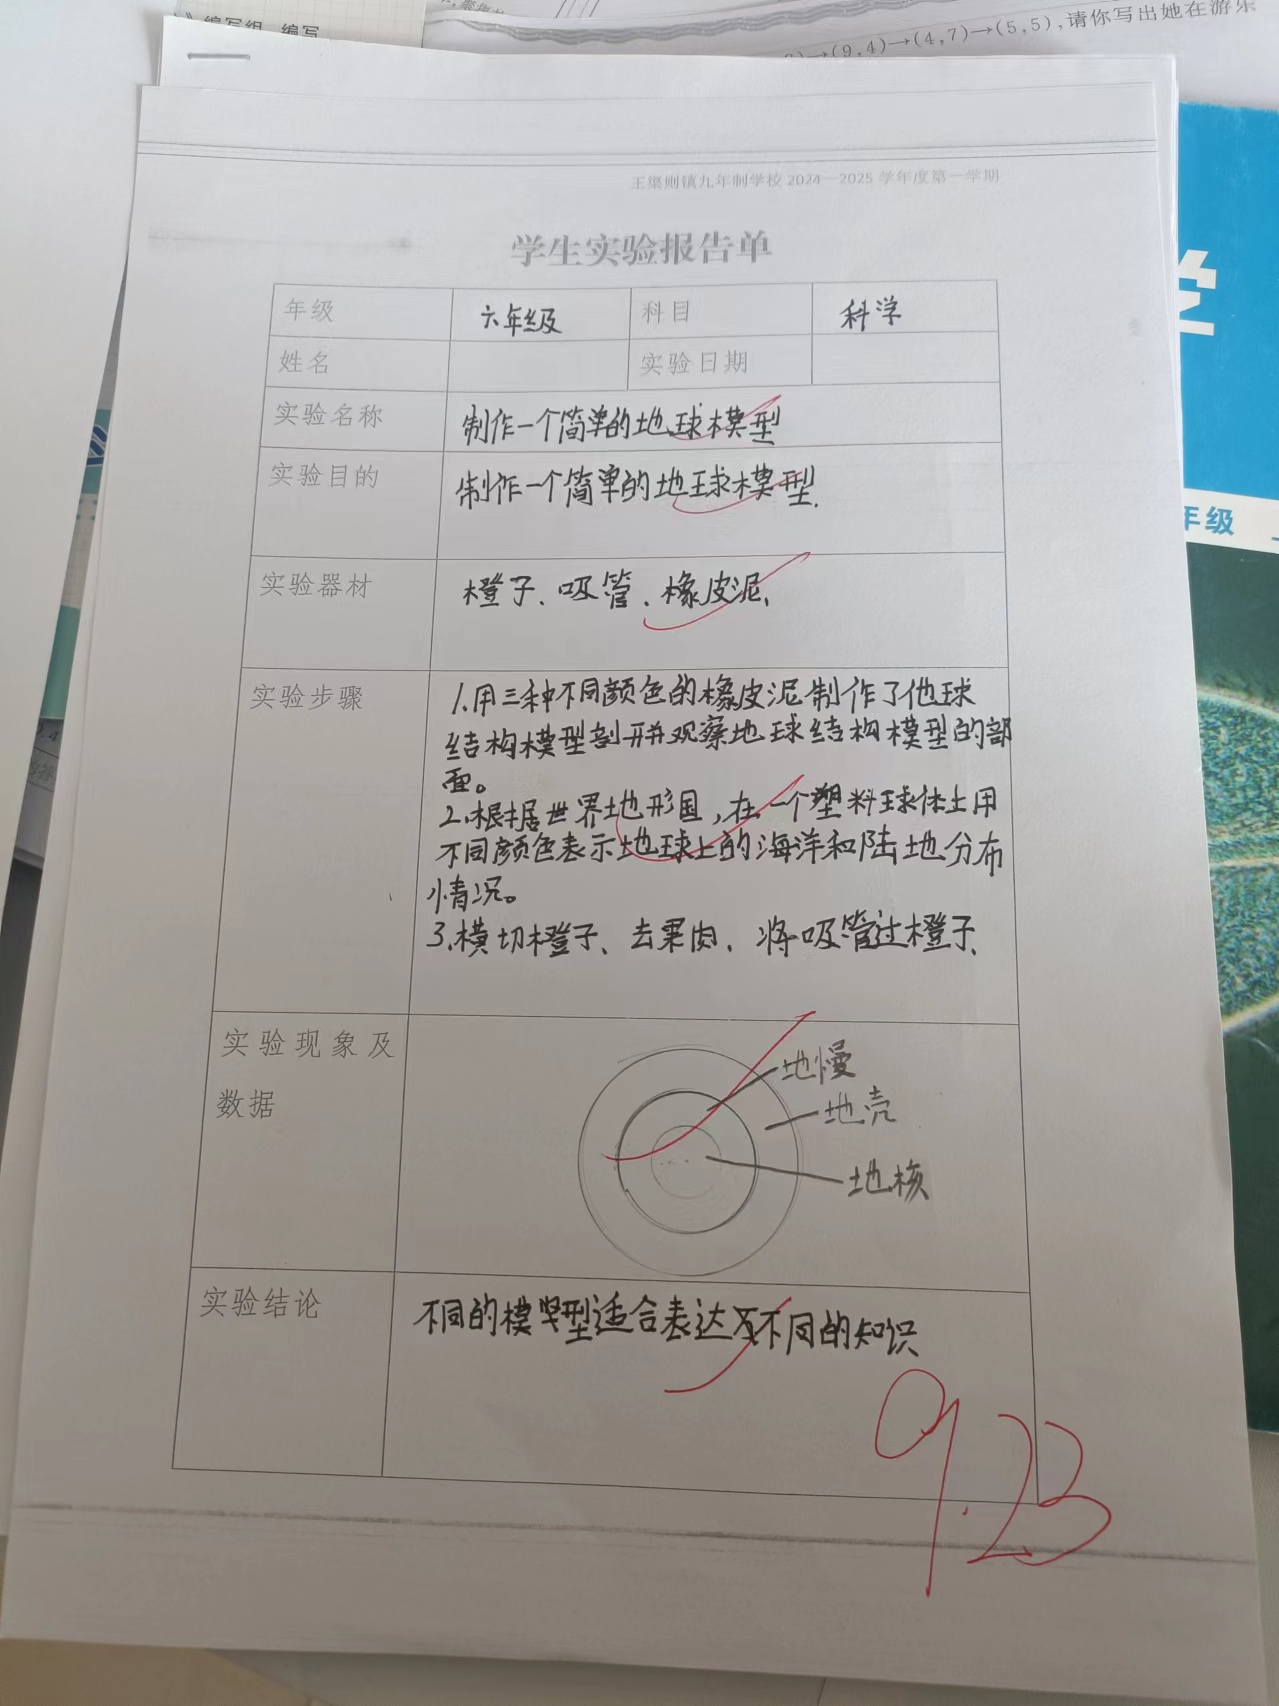 编写组 编写
→(9,4)→(4,7)→(5,5),请你写出她在游乐
王渠则镇九年制学校 2024—2025 学年度第一学期
学生实验报告单
年级 六年级 科目 科学
姓名 实验日期
实验名称 制作一个简单的地球模型
实验目的 制作一个简单的地球模型.
实验器材 橙子、吸管、橡皮泥、
实验步骤 1.用三种不同颜色的橡皮泥制作了他球
结构模型剖开并观察地球结构模型的部
面。
2.根据世界地形国,在一个塑料球体上用
不同颜色表示地球上的海洋和陆地分布
情况。
3.横切橙子、去果肉、将吸管过橙子、
实验现象及
数据
地慢
地壳
地核
实验结论 不同的模型适合表达不同的知识
9.23
年级